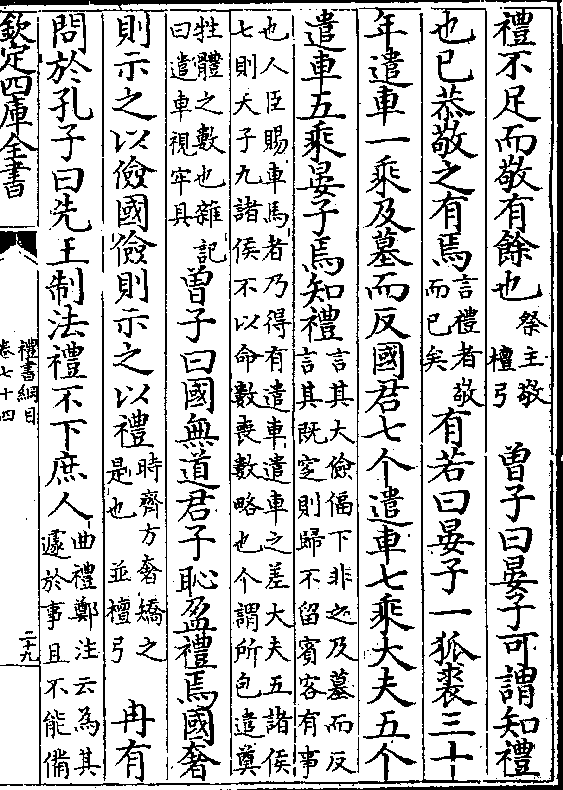 禮不足而敬有餘也祭主敬檀弓　曾子曰晏子可謂知禮
也已恭敬之有焉言禮者敬而已矣有若曰晏子一狐裘三十
年遣車一乘及墓而反國君七个遣車七乘大夫五个
遣車五乘晏子焉知禮言其大儉偪下非之及墓而反言其既窆則歸不留賓客有事
也人臣賜車馬者乃得有遣車遣車之差大夫五諸侯七則天子九諸侯不以命數喪數略也个謂所包遣奠
牲體之數也雜記曰遣車視牢具曾子曰國無道君子恥盈禮焉國奢
則示之以儉國儉則示之以禮時齊方奢矯之是也並檀弓　冉有
問於孔子曰先王制法禮不下庶人曲禮鄭注云為其遽於事且不能備
欽定四庫全書
禮書綱目
卷七十四
二十九